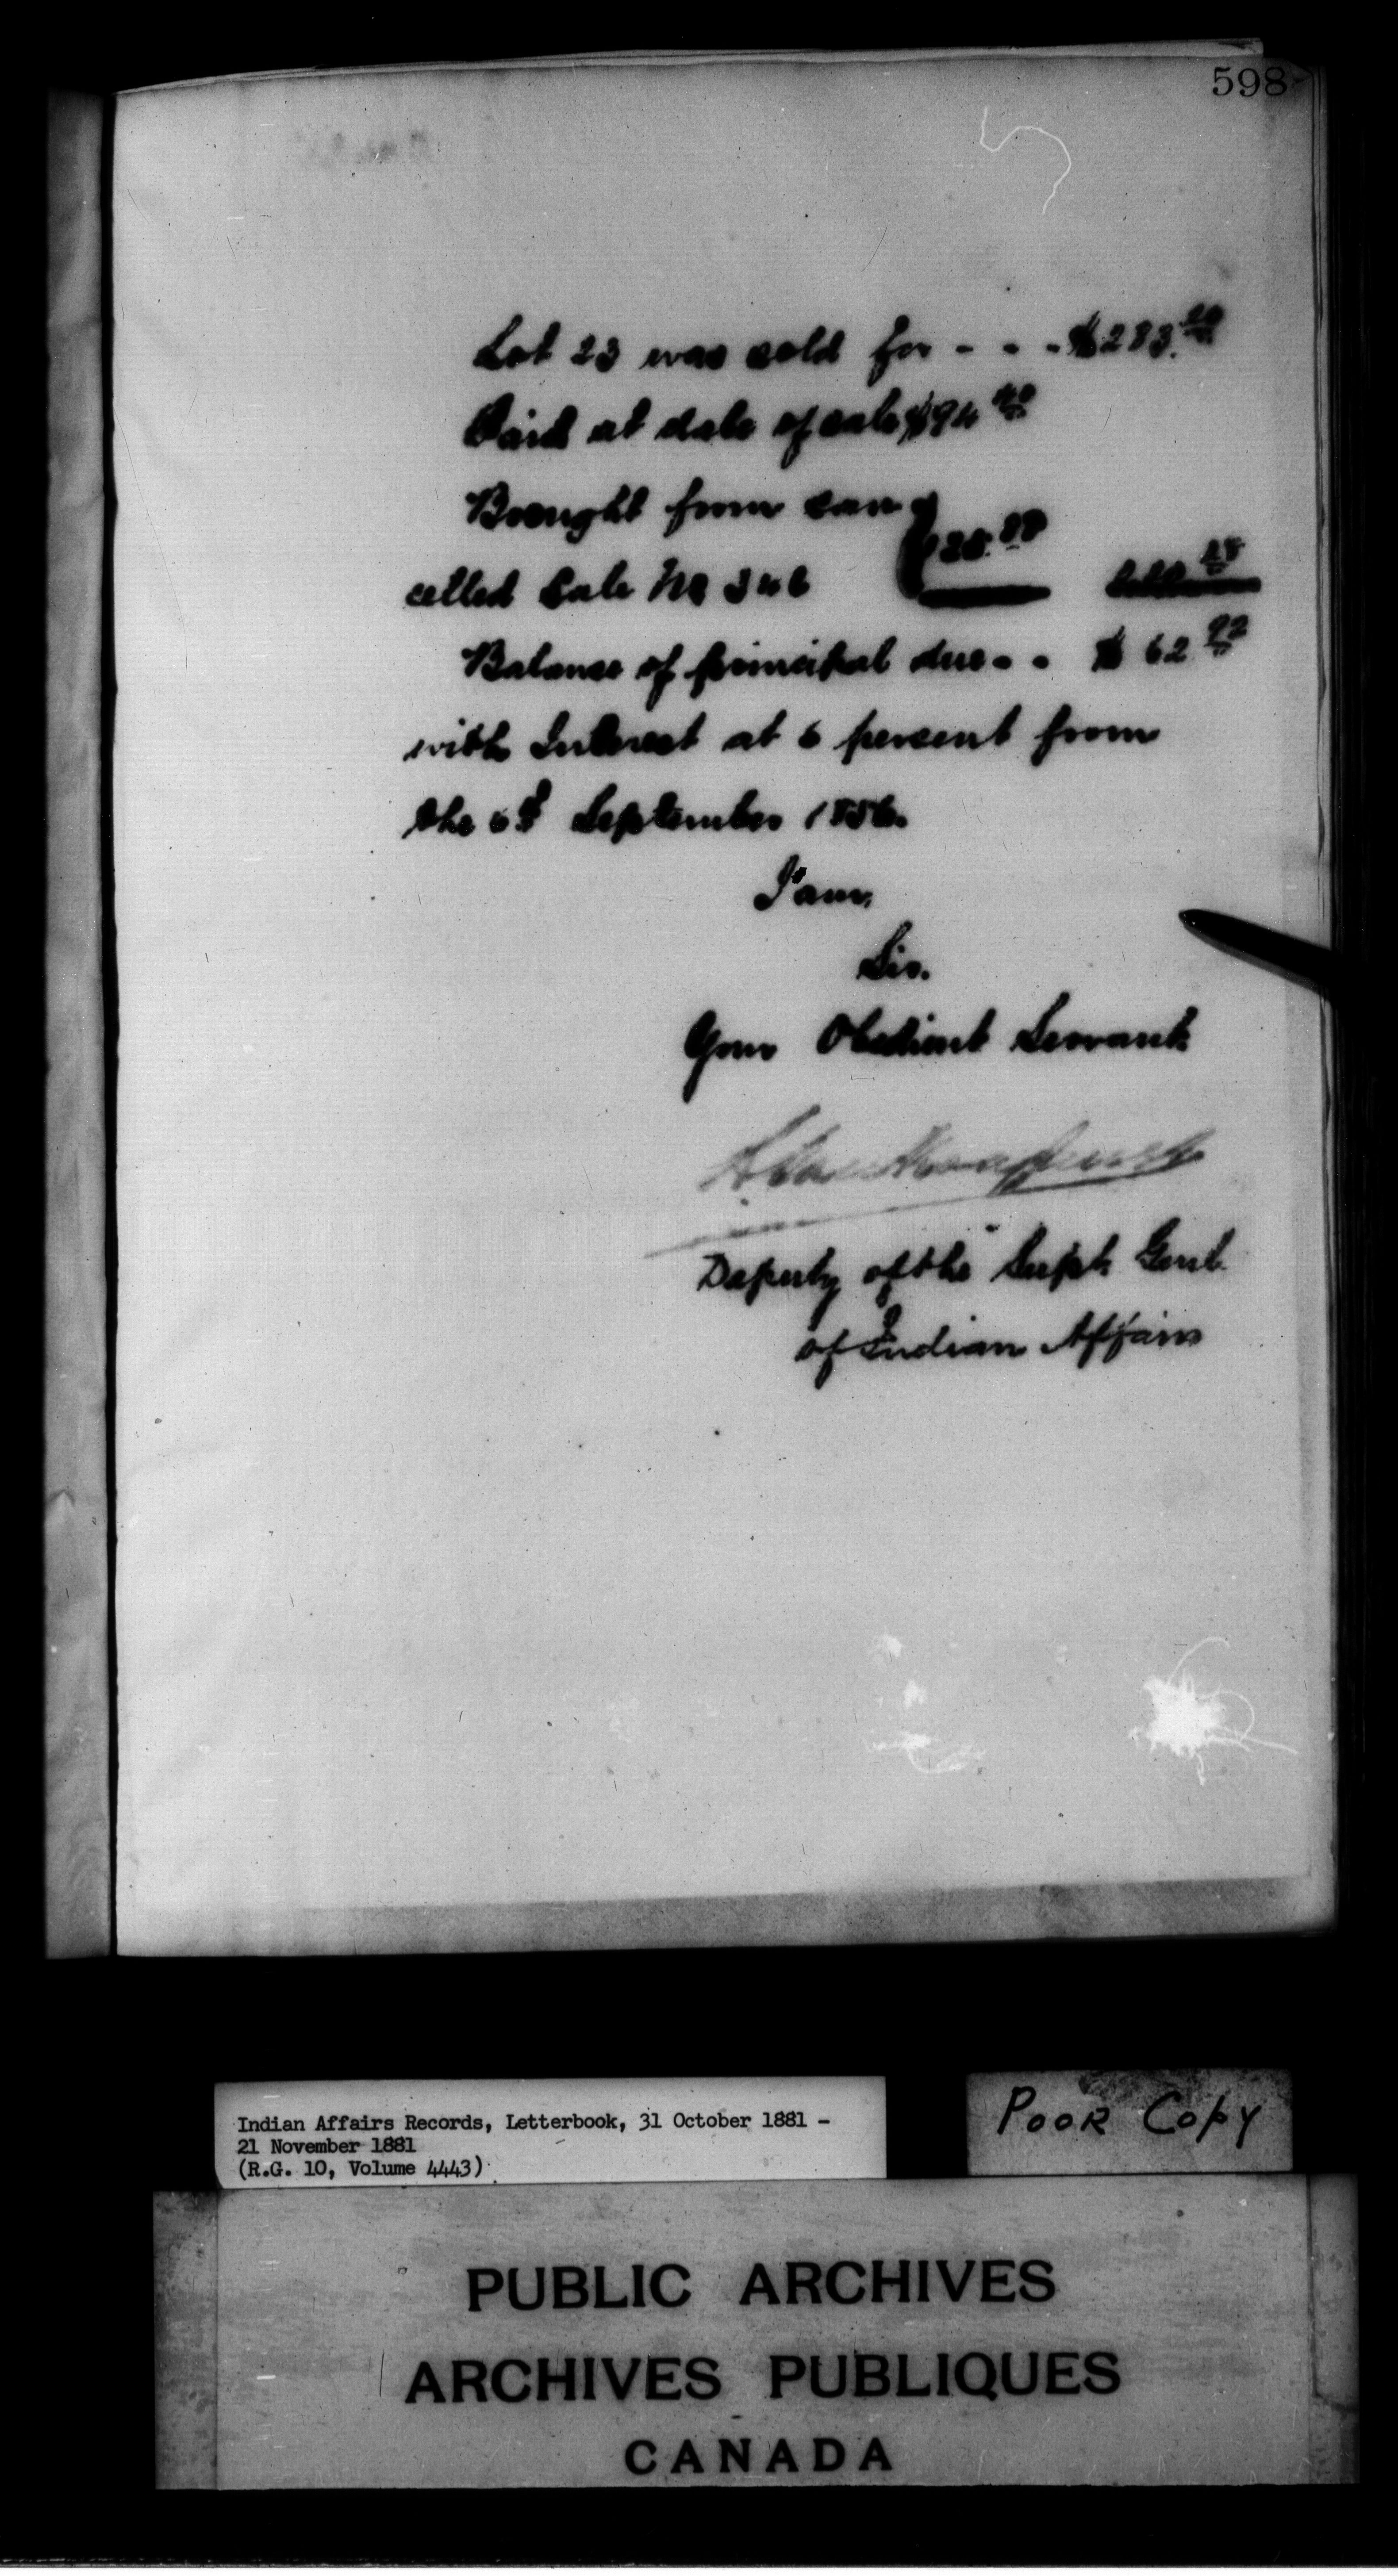 598
Lot 23 was sold for - - - $283.20
Paid at date of sale $94 40
Brought from can
celled Sale No 346
Balance of principal due - - $ 62 92
with Interest at 6 percent from
the 6th September 1856.
I am,
Sir.
Your Obedient Servant
Deputy of the Supt. Genl.
of Indian Affairs
Indian Affairs Records, Letterbook, 31 October 1881 -
21 November 1881
(R.G. 10, Volume 4443)
POOR COPY
PUBLIC ARCHIVES
ARCHIVES PUBLIQUES
CANADA